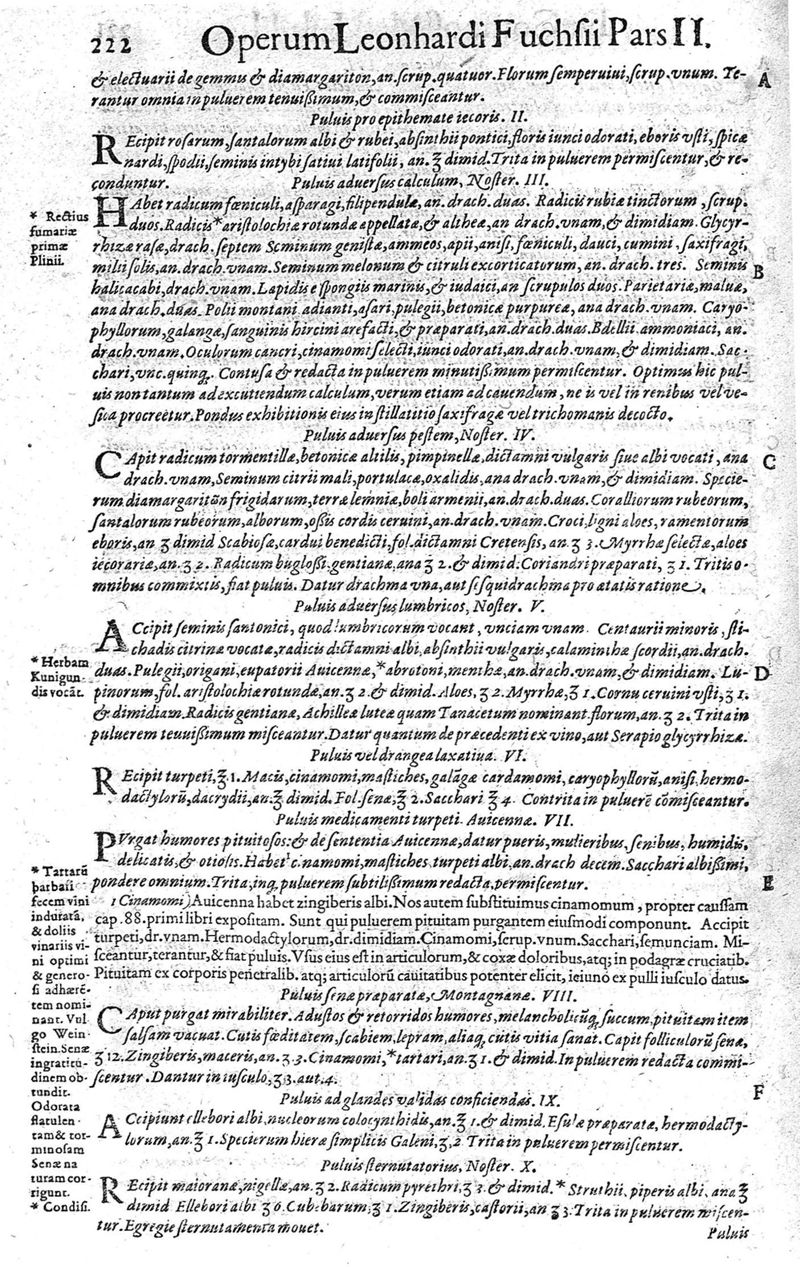 222 Operum Leonhardi Fuchsii Pars II.
& electuarii de gemmis & diamargariton, an. scrup. quatuor. Florum semperuiui, scrup. vnum. Te-
rantur omnia in puluerem tenuißimum, & commisceantur.
A
Puluis pro epithemate iecoris. II.
REcipit rosarum, santalorum albi & rubei, absinthii pontici, floris iunci odorati, eboris vsti, spicæ
nardi, spodii, seminis intybi satiui latifolii, an. ʒ dimid. Trita in puluerem permiscentur, & re-
conduntur. Puluis aduersus calculum, Noster. III.
HAbet radicum fœniculi, asparagi, filipendulæ, an. drach. duas. Radicis rubiæ tinctorum, scrup.
duos. Radicis * aristolochiæ rotundæ appellatæ, & altheæ, an drach. vnam, & dimidiam. Glycyr-
rhizæ rasæ, drach. septem Seminum genistæ, ammeos, apii, anisi, fœniculi, dauci, cumini, saxifragi,
milii solis, an. drach. vnam. Seminum melonum & citruli excorticatorum, an. drach. tres. Seminis
halicacabi, drach. vnam. Lapidis e spongiis marinis, & iudaici, an scrupulos duos. Parietariæ, maluæ,
ana drach. duas. Polii montani adianti, asari, pulegii, betonicæ purpureæ, ana drach. vnam. Caryo-
phyllorum, galangæ, sanguinis hircini arefacti, & præparati, an. drach. duas. Bdellii ammoniaci, an.
drach. vnam. Oculorum cancri, cinamomi selecti, iunci odorati, an. drach. vnam, & dimidiam. Sac-
chari, vnc. quinq;. Contusa & redacta in puluerem minutißimum permiscentur. Optimus hic pul-
uis non tantum ad excutiendum calculum, verum etiam ad cauendum, ne is vel in renibus vel ve-
sica procreetur. Pondus exhibitionis eius in stillatitio saxifragæ vel trichomanis decocto.
* Rectius
fumariæ
primæ
Plinii.
B
Puluis aduersus pestem, Noster. IV.
CApit radicum tormentillæ, betonicæ altilis, pimpinellæ, dictamni vulgaris siue albi vocati, ana
drach. vnam, Seminum citrii mali, portulacæ, oxalidis, ana drach. vnam, & dimidiam. Specie-
rum diamargaritôn frigidarum, terræ lemniæ, boli armenii, an. drach. duas. Coralliorum rubeorum,
santalorum rubeorum, alborum, oßis cordis ceruini, an. drach. vnam. Croci, ligni aloes, ramentorum
eboris, an ʒ dimid Scabiosæ, cardui benedicti, fol. dictamni Cretensis, an. ʒ 3. Myrrhæ selectæ, aloes
iecorariæ, an. ʒ 2. Radicum bugloßi, gentianæ, ana ʒ 2. & dimid. Coriandri præparati, ʒ 1. Tritis o-
mnibus commixtis, fiat puluis. Datur drachma vna, aut sesquidrachma pro ætatis ratione.
C
Puluis aduersus lumbricos, Noster. V.
ACcipit seminis santonici, quod lumbricorum vocant, vnciam vnam. Centaurii minoris, sti-
chadis citrinæ vocatæ, radicis dictamni albi, absinthii vulgaris, calaminthæ scordii, an. drach.
duas. Pulegii, origani, eupatorii Auicennæ, * abrotoni, menthæ, an. drach. vnam, & dimidiam. Lu-
pinorum, fol. aristolochiæ rotundæ, an. ʒ 2. & dimid. Aloes, ʒ 2. Myrrhæ, ʒ 1. Cornu ceruini vsti, ʒ 1.
& dimidiam. Radicis gentianæ, Achilleæ luteæ quam Tanacetum nominant, florum, an. ʒ 2. Trita in
puluerem teuuißimum misceantur. Datur quantum de præcedenti ex vino, aut Serapio glycyrrhizæ.
* Herbam
Kunigun-
dis vocāt.
D
Puluis vel drangea laxatiua. VI.
REcipit turpeti, ʒ. 1. Macis, cinamomi, mastiches, galāgæ cardamomi, caryophyllorū, anisi, hermo-
dactylorū, dacrydii, an. ʒ dimid. Fol. senæ, ʒ 2. Sacchari ʒ 4. Contrita in puluerē cōmisceantur.
Puluis medicamenti turpeti Auicennæ. VII.
PVrgat humores pituitosos: & de sententia Auicennæ, datur pueris, mulieribus, senibus, humidis,
delicatis, & otiosis. Habet cinamomi, mastiches turpeti albi, an. drach decem. Sacchari albißimi,
pondere omnium. Trita, inq; puluerem subtilißimum redacta, permiscentur.
E
1 Cinamomi) Auicenna habet zingiberis albi. Nos autem substituimus cinamomum, propter caussam
cap. 88. primi libri expositam. Sunt qui puluerem pituitam purgantem eiusmodi componunt. Accipit
turpeti, dr. vnam. Hermodactylorum, dr. dimidiam. Cinamomi, scrup. vnum. Sacchari, semunciam. Mi-
sceantur, terantur, & fiat puluis. Vsus eius est in articulorum, & coxæ doloribus, atq; in podagræ cruciatib.
Pituitam ex corporis penetralib. atq; articulorū cauitatibus potenter elicit, ieiuno ex pulli iusculo datus.
Puluis senæ præparatæ, Montagnanæ. VIII.
CAput purgat mirabiliter. Adustos & retorridos humores, melancholicūq; succum, pituitam item
salsam vacuat. Cutis fœditatem, scabiem, lepram, aliaq; cutis vitia sanat. Capit folliculorū senæ,
ʒ 12. Zingiberis, maceris, an. ʒ. 3. Cinamomi, * tartari, an. ʒ 1. & dimid. In puluerem redacta commi-
scentur. Dantur in iusculo, ʒ 3. aut. 4.
* Tartarū
barbari
fecem vini
induratā,
& doliis
vinariis vi-
ni optimi
& genero-
si adhærē-
tem nomi-
nant. Vul
go Wein
stein. Senæ
ingratitu-
dinem ob-
tundit.
Odorata
flatulen-
tam & tor-
minosam
Senæ na
turam cor-
rigunt.
* Condisi.
Puluis ad glandes validas conficiendas. IX.
F
ACcipiunt ellebori albi, nucleorum colocynthidis, an. ʒ 1. & dimid. Esulæ præparatæ, hermodacty-
lorum, an. ʒ 1. Specierum hieræ simplicis Galeni, ʒ, 2 Trita in puluerem permiscentur.
Puluis sternutatorius, Noster. X.
REcipit maioranæ, nigellæ, an. ʒ 2. Radicum pyrethri, ʒ 3. & dimid. * Struthii, piperis albi, ana ʒ
dimid Ellebori albi ʒ 6. Cubebarum, ʒ 1. Zingiberis, castorii, an ʒ 3. Trita in puluerem miscen-
tur. Egregie sternutamenta mouet.
Puluis